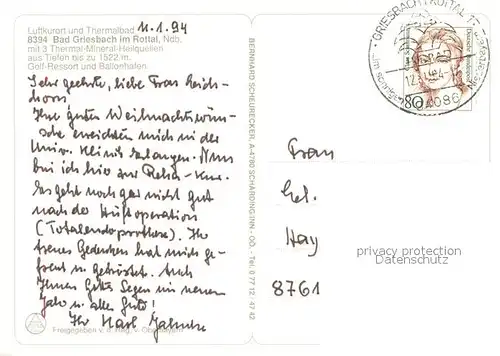 Luftkurort und Thermalbad
11.1.94
8394 Bad Griesbach im Rottal, Ndb.
mit 3 Thermal-Mineral-Heilquellen
aus Tiefen bis zu 1522/m.
Golf-Ressort und Ballonhafen
Sehr geehrte, liebe Frau Reich-
horn!
Ihre guten Weihnachtswün-
sche erreichten mich in der
Univ. Klinik Erlangen. Nun
bin ich hier zur Reha-Kur.
Es geht noch gar nicht gut
nach der Hüftoperation
(Totalendoprothese). Ihr
treues Gedenken hat mich ge-
freut u. getröstet. Auch
Ihnen Gottes Segen im neuen
Jahr u. alles Gute!
Ihr Karl
Freigegeben v. d. Reg. v. Oberbayern
BERNHARD SCHEURECKER, A-4780 SCHÄRDING/INN - OÖ. - Tel. 0 77 12, 47 42
GRIESBACH I ROTTAL
94086
80
Deutsche Bundespost
Frau
Hay
8761
privacy protection
Datenschutz